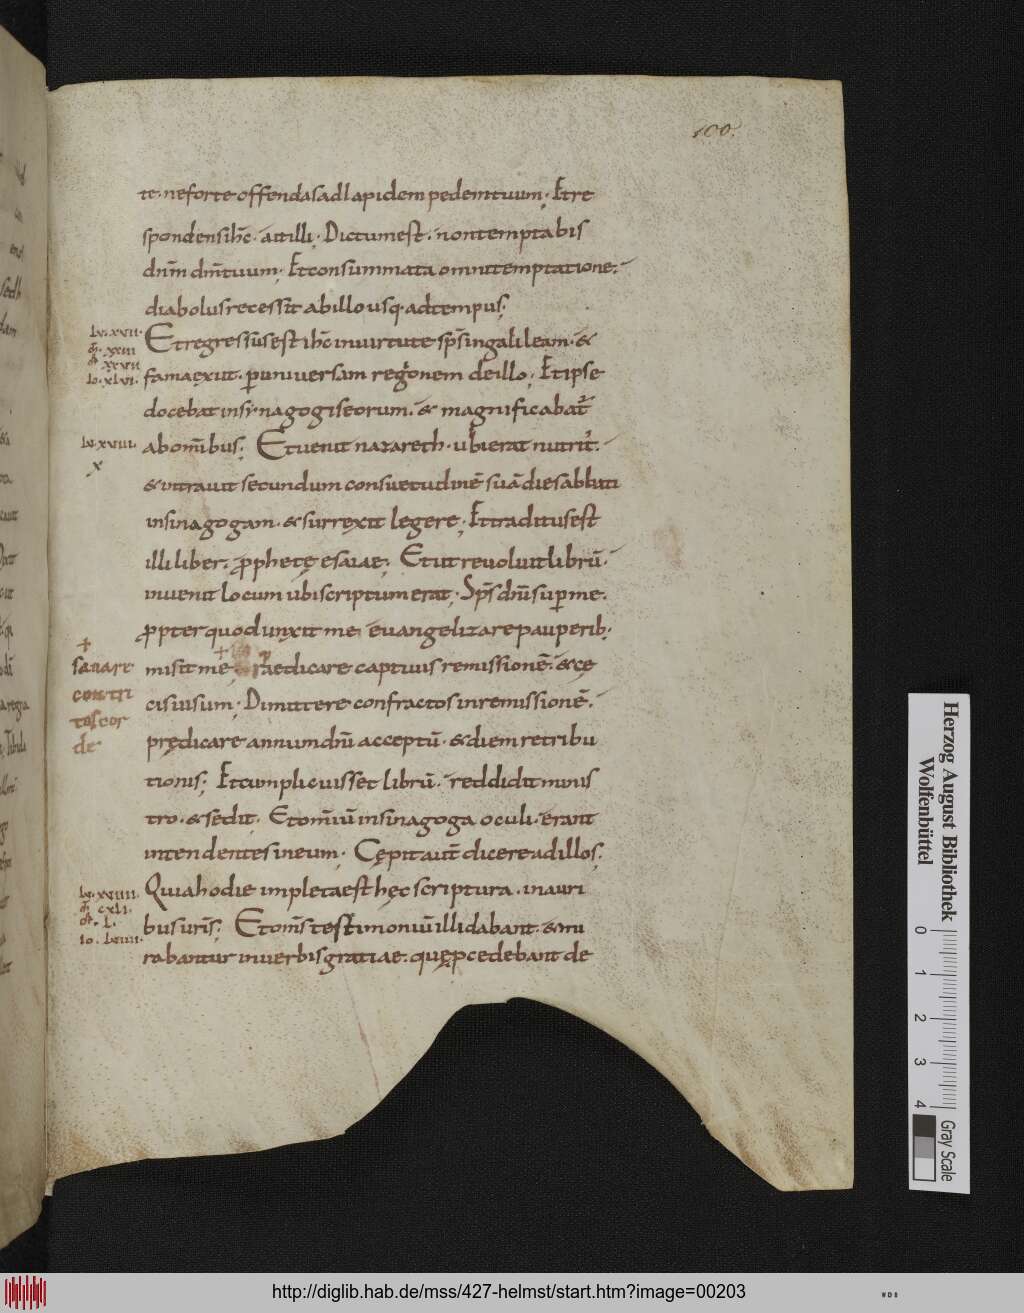 100.
te. ne forte offendas ad lapidem pedem tuum. Et re
spondens ihc. ait illi. Dictum est. non temptabis
dnm dm tuum. Et consummata omni temptatione.
diabolus recessit ab illo usq. ad tempus.
lu. xvii.
Et regressus est ihc in uirtute sps in galileam. &
xxiii
fama exiit. p uniuersam regionem de illo. Et ipse
io. xlvi.
docebat in synagogis eorum. & magnificabat
lu. xviii.
ab omnibus. Et uenit nazareth. ubi erat nutrit.
x
& intrauit secundum consuetudinē suā die sabbati
in sinagogam. & surrexit legere. Et traditus est
illi liber. pphetę esaiae. Et ut reuoluit librū.
inuenit locum ubi scriptum erat. Sps dnī sup me.
ppter quod unxit me. euangelizare pauperib.
+
sanare
contri
tos cor
de
misit me + praedicare captiuis remissionē. & cę
cis uisum. Dimittere confractos in remissionē.
prędicare annum dnī acceptū. & diem retribu
tionis. Et cum plicuisset librū. reddidit minis
tro. & sedit. Et omniū in sinagoga oculi. erant
intendentes in eum. Cępit aut dicere ad illos.
lu. xviiii.
Quia hodie impleta est hęc scriptura. in auri
cxli.
l.
bus uris. Et oms testimoniū illi dabant. & mi
io. lviiii.
rabantur in uerbis gratiae. quę pcedebant de
Herzog August Bibliothek
Wolfenbüttel
0 1 2 3 4
Gray Scale
http://diglib.hab.de/mss/427-helmst/start.htm?image=00203
WDB